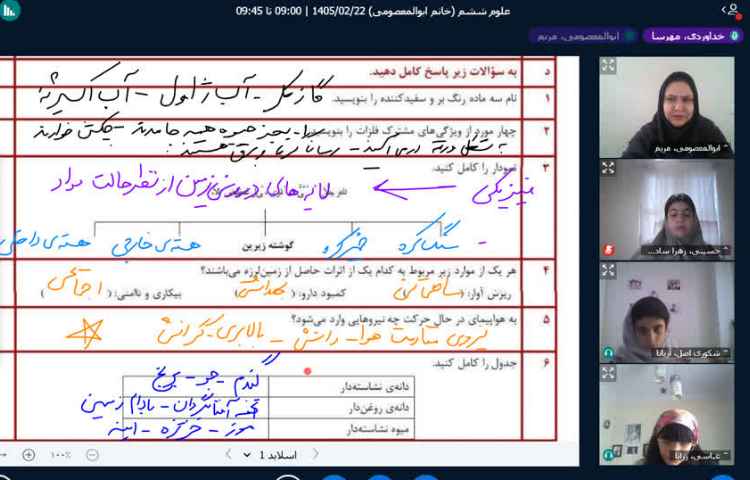 علوم ششم (خانم ابوالمعصومی) 1405/02/22 | 09:00 تا 09:45
خداوردی، مهرسا
ابوالمعصومی، مریم
د به سؤالات زیر پاسخ کامل دهید.
۱ نام سه ماده رنگ بر و سفیدکننده را بنویسید.
گاز کلر - آب ژاول - آب اکسیژنه
۲ چهار مورد از ویژگی‌های مشترک فلزات را بنویسید.
بجز جیوه همه جامدند - چکش خوارند
به شکل ورقه در می آیند - رسانا گرما و برق هستند.
۳ نمودار را کامل کنید.
فیزیکی
لایه های درونی زمین از نظر حالت مواد
سنگ کره
خمیرکره
گوشته زیرین
هسته ی خارجی
هسته ی داخلی
۴ هر یک از موارد زیر مربوط به کدام یک از اثرات حاصل از زمین‌لرزه می‌باشند؟
ریزش آوار: (ساختمانی) کمبود دارو: (بهداشتی) بیکاری و ناامنی: (اجتماعی)
۵ به هواپیمای در حال حرکت چه نیروهایی وارد می‌شود؟
نیروی مقاومت هوا - رانش - بالابری - گرانش
۶ جدول را کامل کنید.
دانه‌ی نشاسته‌دار گندم - جو - برنج
دانه‌ی روغن‌دار تخمه آفتابگردان - بادام زمینی
میوه نشاسته‌دار موز - خرما - انبه
ابوالمعصومی، مریم
حسینی، زهرا سادا...
شکوری اصل، آریانا
عباسی، رزانا
۱۰۰٪
اسلاید 1